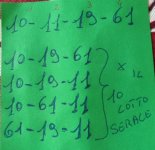 10-11-19-61
10-19-61
10-19-11
10-61-11
61-19-11
X IL
10
LOTTO
SERALE